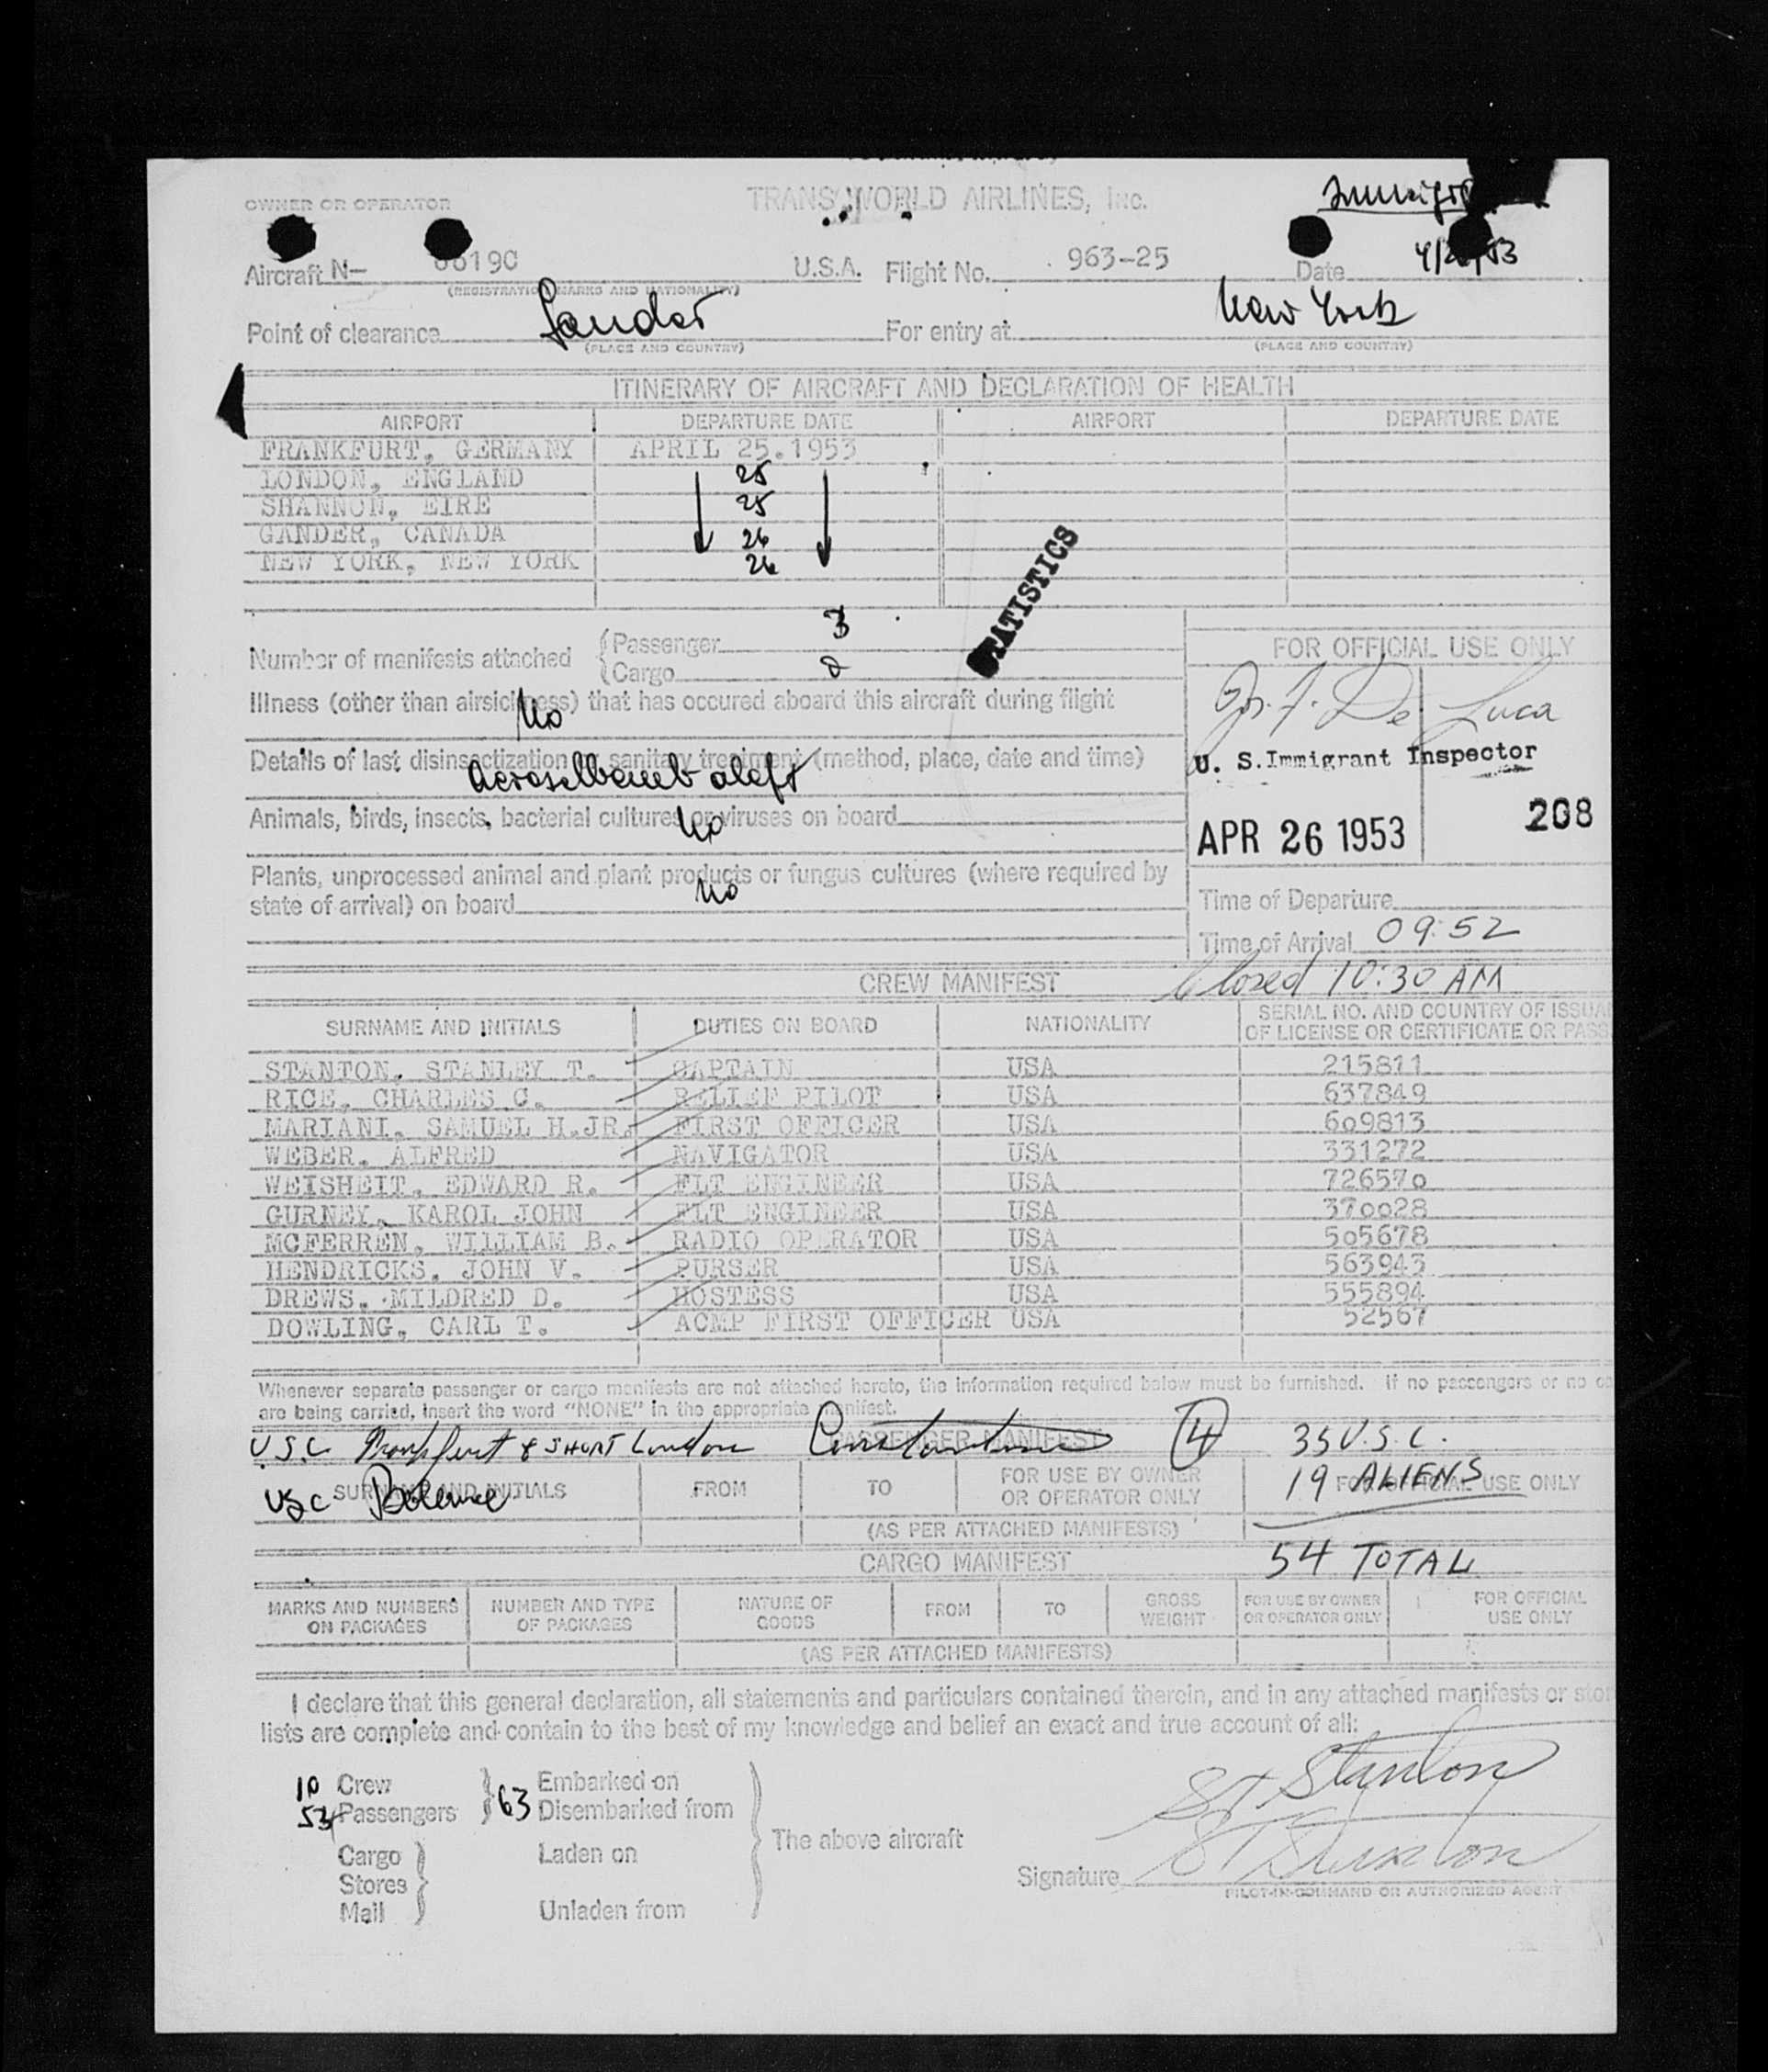 OWNER OR OPERATOR TRANS WORLD AIRLINES, Inc.
Aircraft N- 6819C U.S.A. Flight No. 963-25 Date 4/26/53
(REGISTRATION MARKS AND NATIONALITY)
Point of clearance Gander For entry at New York
(PLACE AND COUNTRY) (PLACE AND COUNTRY)
ITINERARY OF AIRCRAFT AND DECLARATION OF HEALTH
AIRPORT DEPARTURE DATE AIRPORT DEPARTURE DATE
FRANKFURT, GERMANY APRIL 25.1953
LONDON, ENGLAND 25
SHANNON, EIRE 25
GANDER, CANADA 26
NEW YORK, NEW YORK 26
STATISTICS
Number of manifests attached
Passenger 3
Cargo 2
FOR OFFICIAL USE ONLY
Illness (other than airsickness) that has occured aboard this aircraft during flight
No
De Luca
U. S. Immigrant Inspector
Details of last disinsectization or sanitary treatment (method, place, date and time)
Aerosolbomb aloft
Animals, birds, insects, bacterial cultures or viruses on board No
APR 26 1953 208
Plants, unprocessed animal and plant products or fungus cultures (where required by
state of arrival) on board No
Time of Departure
Time of Arrival 09:52
CREW MANIFEST Closed 10:30 AM
SURNAME AND INITIALS DUTIES ON BOARD NATIONALITY SERIAL NO. AND COUNTRY OF ISSUA
OF LICENSE OR CERTIFICATE OR PASS
STANTON, STANLEY T. CAPTAIN USA 215811
RICE, CHARLES C. RELIEF PILOT USA 637849
MARIANI, SAMUEL H.JR. FIRST OFFICER USA 609813
WEBER, ALFRED NAVIGATOR USA 331272
WEISHEIT, EDWARD R. FLT ENGINEER USA 726570
GURNEY, KAROL JOHN FLT ENGINEER USA 370028
MCFERREN, WILLIAM B. RADIO OPERATOR USA 505678
HENDRICKS, JOHN V. PURSER USA 563943
DREWS, MILDRED D. HOSTESS USA 555894
DOWLING, CARL T. ACMP FIRST OFFICER USA 52567
Whenever separate passenger or cargo manifests are not attached hereto, the information required below must be furnished. If no passengers or no ca
are being carried, insert the word "NONE" in the appropriate manifest.
PASSENGER MANIFEST
U.S.C. Frankfurt & SHORT London 4 35 U.S.C.
SURNAME AND INITIALS FROM TO FOR USE BY OWNER OR OPERATOR ONLY FOR OFFICIAL USE ONLY
USC 19 ALIENS
(AS PER ATTACHED MANIFESTS)
CARGO MANIFEST 54 TOTAL
MARKS AND NUMBERS ON PACKAGES NUMBER AND TYPE OF PACKAGES NATURE OF GOODS FROM TO GROSS WEIGHT FOR USE BY OWNER OR OPERATOR ONLY FOR OFFICIAL USE ONLY
(AS PER ATTACHED MANIFESTS)
I declare that this general declaration, all statements and particulars contained therein, and in any attached manifests or stor
lists are complete and contain to the best of my knowledge and belief an exact and true account of all:
10 Crew Embarked on
Passengers 63 Disembarked from
The above aircraft
Cargo Laden on
Stores
Mail Unladen from
ST Stanton
Signature ST Stanton
PILOT-IN-COMMAND OR AUTHORIZED AGENT